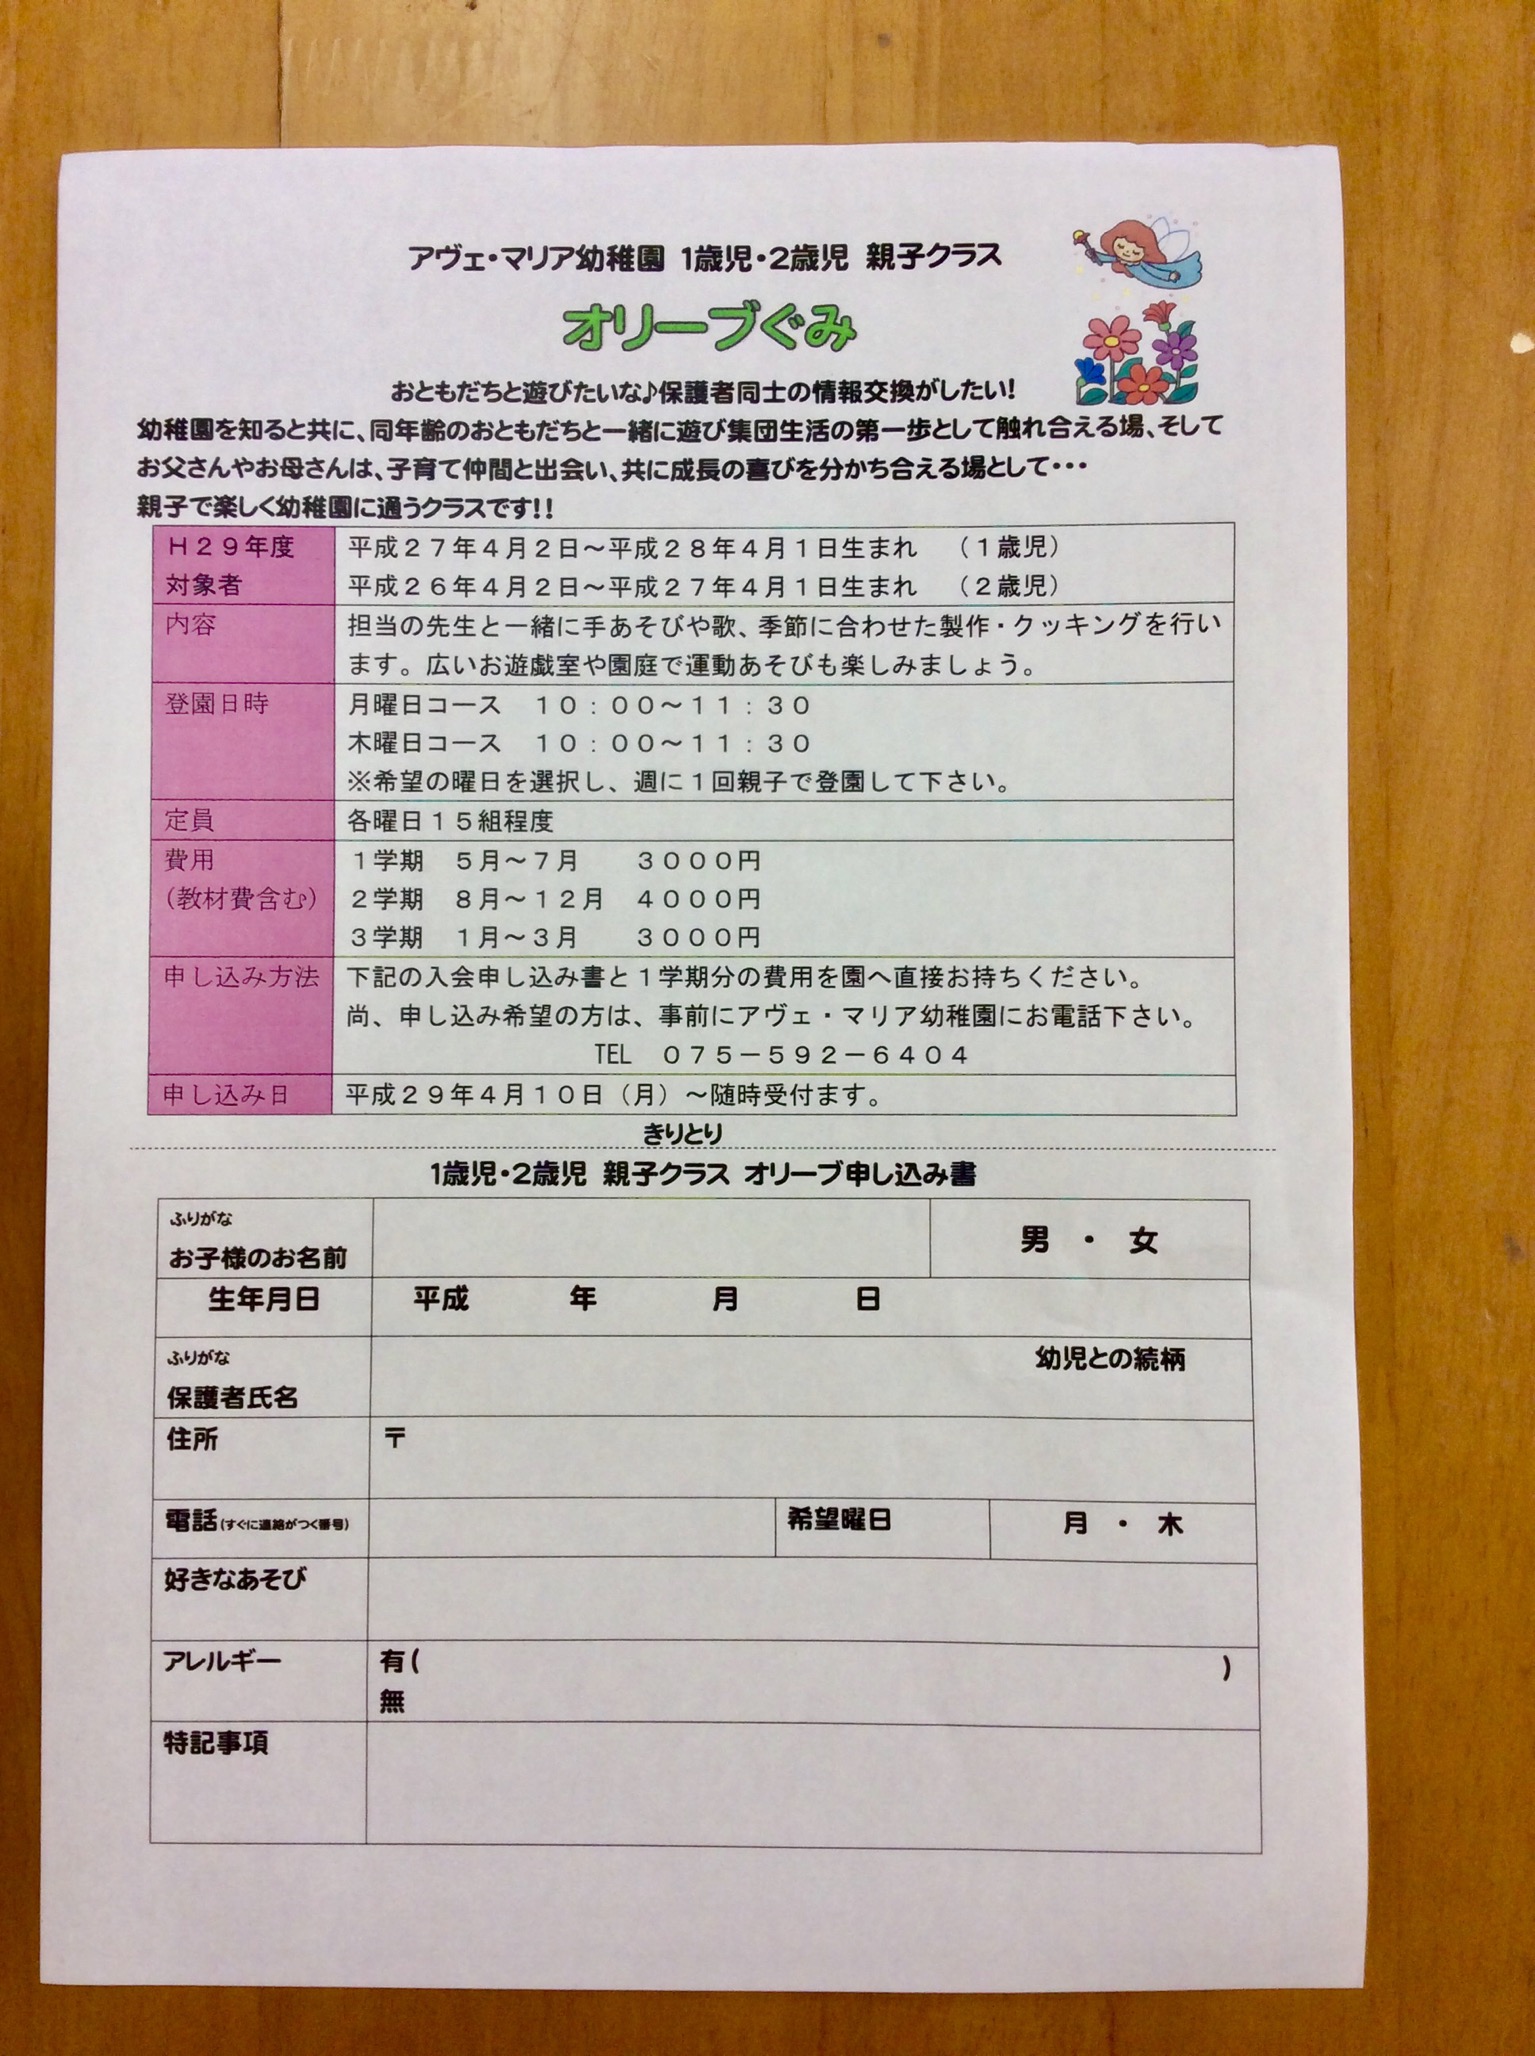 アヴェ・マリア幼稚園 1歳児・2歳児 親子クラス
オリーブぐみ
おともだちと遊びたいな♪保護者同士の情報交換がしたい！
幼稚園を知ると共に、同年齢のおともだちと一緒に遊び集団生活の第一歩として触れ合える場、そして
お父さんやお母さんは、子育て仲間と出会い、共に成長の喜びを分かち合える場として・・・
親子で楽しく幼稚園に通うクラスです！！
Ｈ２９年度 平成２７年４月２日～平成２８年４月１日生まれ （１歳児）
対象者 平成２６年４月２日～平成２７年４月１日生まれ （２歳児）
内容 担当の先生と一緒に手あそびや歌、季節に合わせた製作・クッキングを行い
ます。広いお遊戯室や園庭で運動あそびも楽しみましょう。
登園日時 月曜日コース １０：００～１１：３０
木曜日コース １０：００～１１：３０
※希望の曜日を選択し、週に１回親子で登園して下さい。
定員 各曜日１５組程度
費用 １学期 ５月～７月 ３０００円
（教材費含む） ２学期 ８月～１２月 ４０００円
３学期 １月～３月 ３０００円
申し込み方法 下記の入会申し込み書と１学期分の費用を園へ直接お持ちください。
尚、申し込み希望の方は、事前にアヴェ・マリア幼稚園にお電話下さい。
TEL ０７５－５９２－６４０４
申し込み日 平成２９年４月１０日（月）～随時受付ます。
きりとり
1歳児・2歳児 親子クラス オリーブ申し込み書
ふりがな
お子様のお名前 男 ・ 女
生年月日 平成 年 月 日
ふりがな 幼児との続柄
保護者氏名
住所 〒
電話(すぐに連絡がつく番号) 希望曜日 月 ・ 木
好きなあそび
アレルギー 有( )
無
特記事項